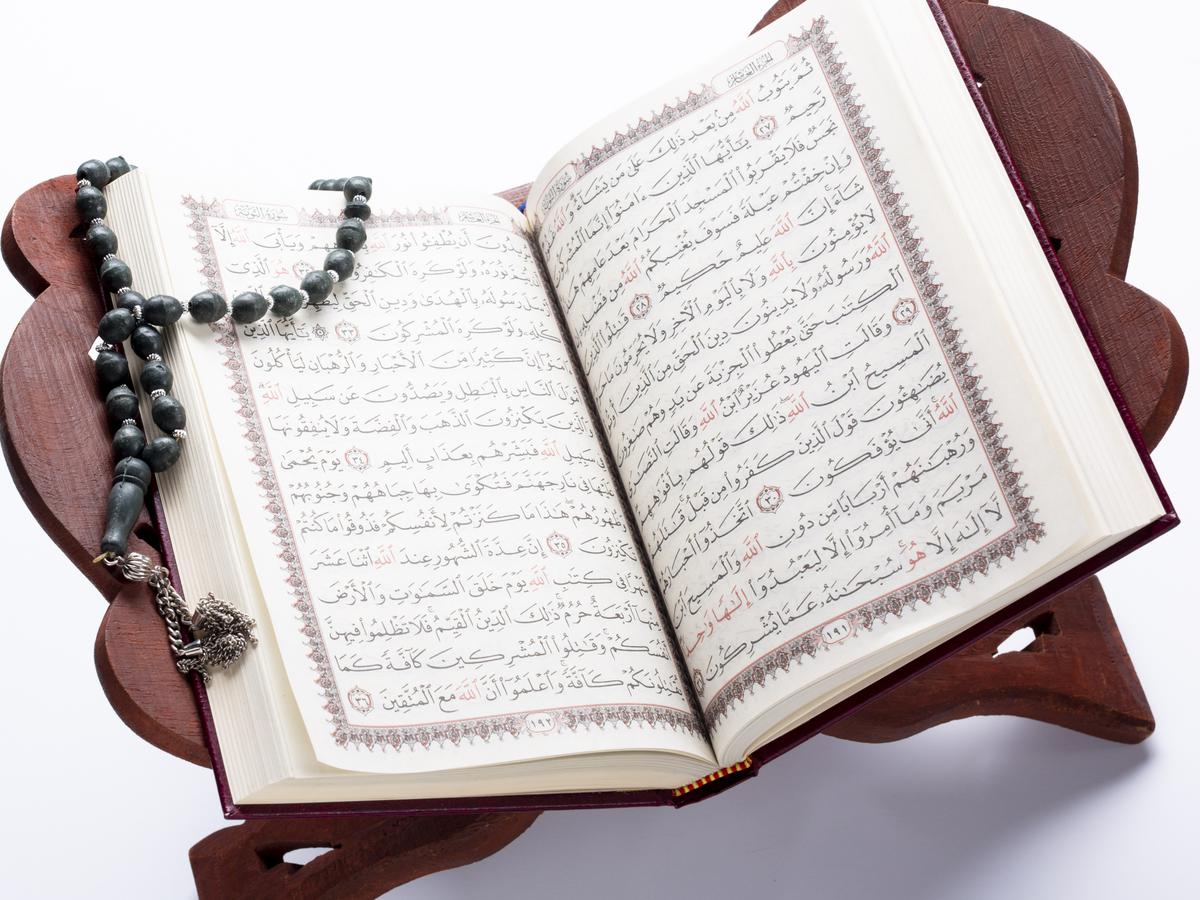 ثُمَّ يَتُوبُ ٱللَّهُ مِنۢ بَعْدِ ذَٰلِكَ عَلَىٰ مَن يَشَآءُ وَٱللَّهُ
رَّحِيمٌ ٢٧ يَٰٓأَيُّهَا ٱلَّذِينَ ءَامَنُوٓا۟ إِنَّمَا
نَجَسٌ فَلَا يَقْرَبُوا۟ ٱلْمَسْجِدَ ٱلْحَرَامَ بَعْدَ عَامِهِمْ
وَإِنْ خِفْتُمْ عَيْلَةً فَسَوْفَ يُغْنِيكُمُ ٱللَّهُ مِن
شَآءَ إِنَّ ٱللَّهَ عَلِيمٌ حَكِيمٌ ٢٨ قَٰتِلُوا۟ ٱلَّذِينَ
لَا يُؤْمِنُونَ بِٱللَّهِ وَلَا بِٱلْيَوْمِ ٱلْءَاخِرِ وَلَا يُحَرِّمُونَ مَا
ٱللَّهُ وَرَسُولُهُۥ وَلَا يَدِينُونَ دِينَ ٱلْحَقِّ مِنَ ٱلَّذِينَ
ٱلْكِتَٰبَ حَتَّىٰ يُعْطُوا۟ ٱلْجِزْيَةَ عَن يَدٍ وَهُمْ صَٰغِرُونَ
٢٩ وَقَالَتِ ٱلْيَهُودُ عُزَيْرٌ ٱبْنُ ٱللَّهِ وَقَالَتِ
ٱلْمَسِيحُ ٱبْنُ ٱللَّهِ ذَٰلِكَ قَوْلُهُم بِأَفْوَٰهِهِمْ
يُضَٰهِـُٔونَ قَوْلَ ٱلَّذِينَ كَفَرُوا۟ مِن قَبْلُ
ٱللَّهُ أَنَّىٰ يُؤْفَكُونَ ٣٠ ٱتَّخَذُوٓا۟
وَرُهْبَٰنَهُمْ أَرْبَابًا مِّن دُونِ ٱللَّهِ وَٱلْمَسِيحَ ٱبْنَ
مَرْيَمَ وَمَآ أُمِرُوٓا۟ إِلَّا لِيَعْبُدُوٓا۟ إِلَٰهًا
لَّآ إِلَٰهَ إِلَّا هُوَ سُبْحَٰنَهُۥ عَمَّا يُشْرِكُونَ
١٩١
سُورَةُ التَّوْبَةِ
أَن يُطْفِـُٔوا۟ نُورَ ٱللَّهِ وَيَأْبَى ٱللَّهُ إِلَّآ
نُورَهُۥ وَلَوْ كَرِهَ ٱلْكَٰفِرُونَ هُوَ ٱلَّذِىٓ
رَسُولَهُۥ بِٱلْهُدَىٰ وَدِينِ ٱلْحَقِّ
وَلَوْ كَرِهَ ٱلْمُشْرِكُونَ ٣٣ يَٰٓأَيُّهَا ٱلَّذِينَ
إِنَّ كَثِيرًا مِّنَ ٱلْأَحْبَارِ وَٱلرُّهْبَانِ لَيَأْكُلُونَ
ٱلنَّاسِ بِٱلْبَٰطِلِ وَيَصُدُّونَ عَن سَبِيلِ ٱللَّهِ
يَكْنِزُونَ ٱلذَّهَبَ وَٱلْفِضَّةَ وَلَا يُنفِقُونَهَا
سَبِيلِ ٱللَّهِ فَبَشِّرْهُم بِعَذَابٍ أَلِيمٍ ٣٤ يَوْمَ يُحْمَىٰ
عَلَيْهَا فِى نَارِ جَهَنَّمَ فَتُكْوَىٰ بِهَا جِبَاهُهُمْ وَجُنُوبُهُمْ
وَظُهُورُهُمْ هَٰذَا مَا كَنَزْتُمْ لِأَنفُسِكُمْ فَذُوقُوا۟ مَا كُنتُمْ
تَكْنِزُونَ ٣٥ إِنَّ عِدَّةَ ٱلشُّهُورِ عِندَ ٱللَّهِ ٱثْنَا عَشَرَ
شَهْرًا فِى كِتَٰبِ ٱللَّهِ يَوْمَ خَلَقَ ٱلسَّمَٰوَٰتِ وَٱلْأَرْضَ
مِنْهَآ أَرْبَعَةٌ حُرُمٌ ذَٰلِكَ ٱلدِّينُ ٱلْقَيِّمُ فَلَا تَظْلِمُوا۟ فِيهِنَّ
أَنفُسَكُمْ وَقَٰتِلُوا۟ ٱلْمُشْرِكِينَ كَآفَّةً كَمَا
يُقَٰتِلُونَكُمْ كَآفَّةً وَٱعْلَمُوٓا۟ أَنَّ ٱللَّهَ مَعَ ٱلْمُتَّقِينَ ٣٦
١٩٢